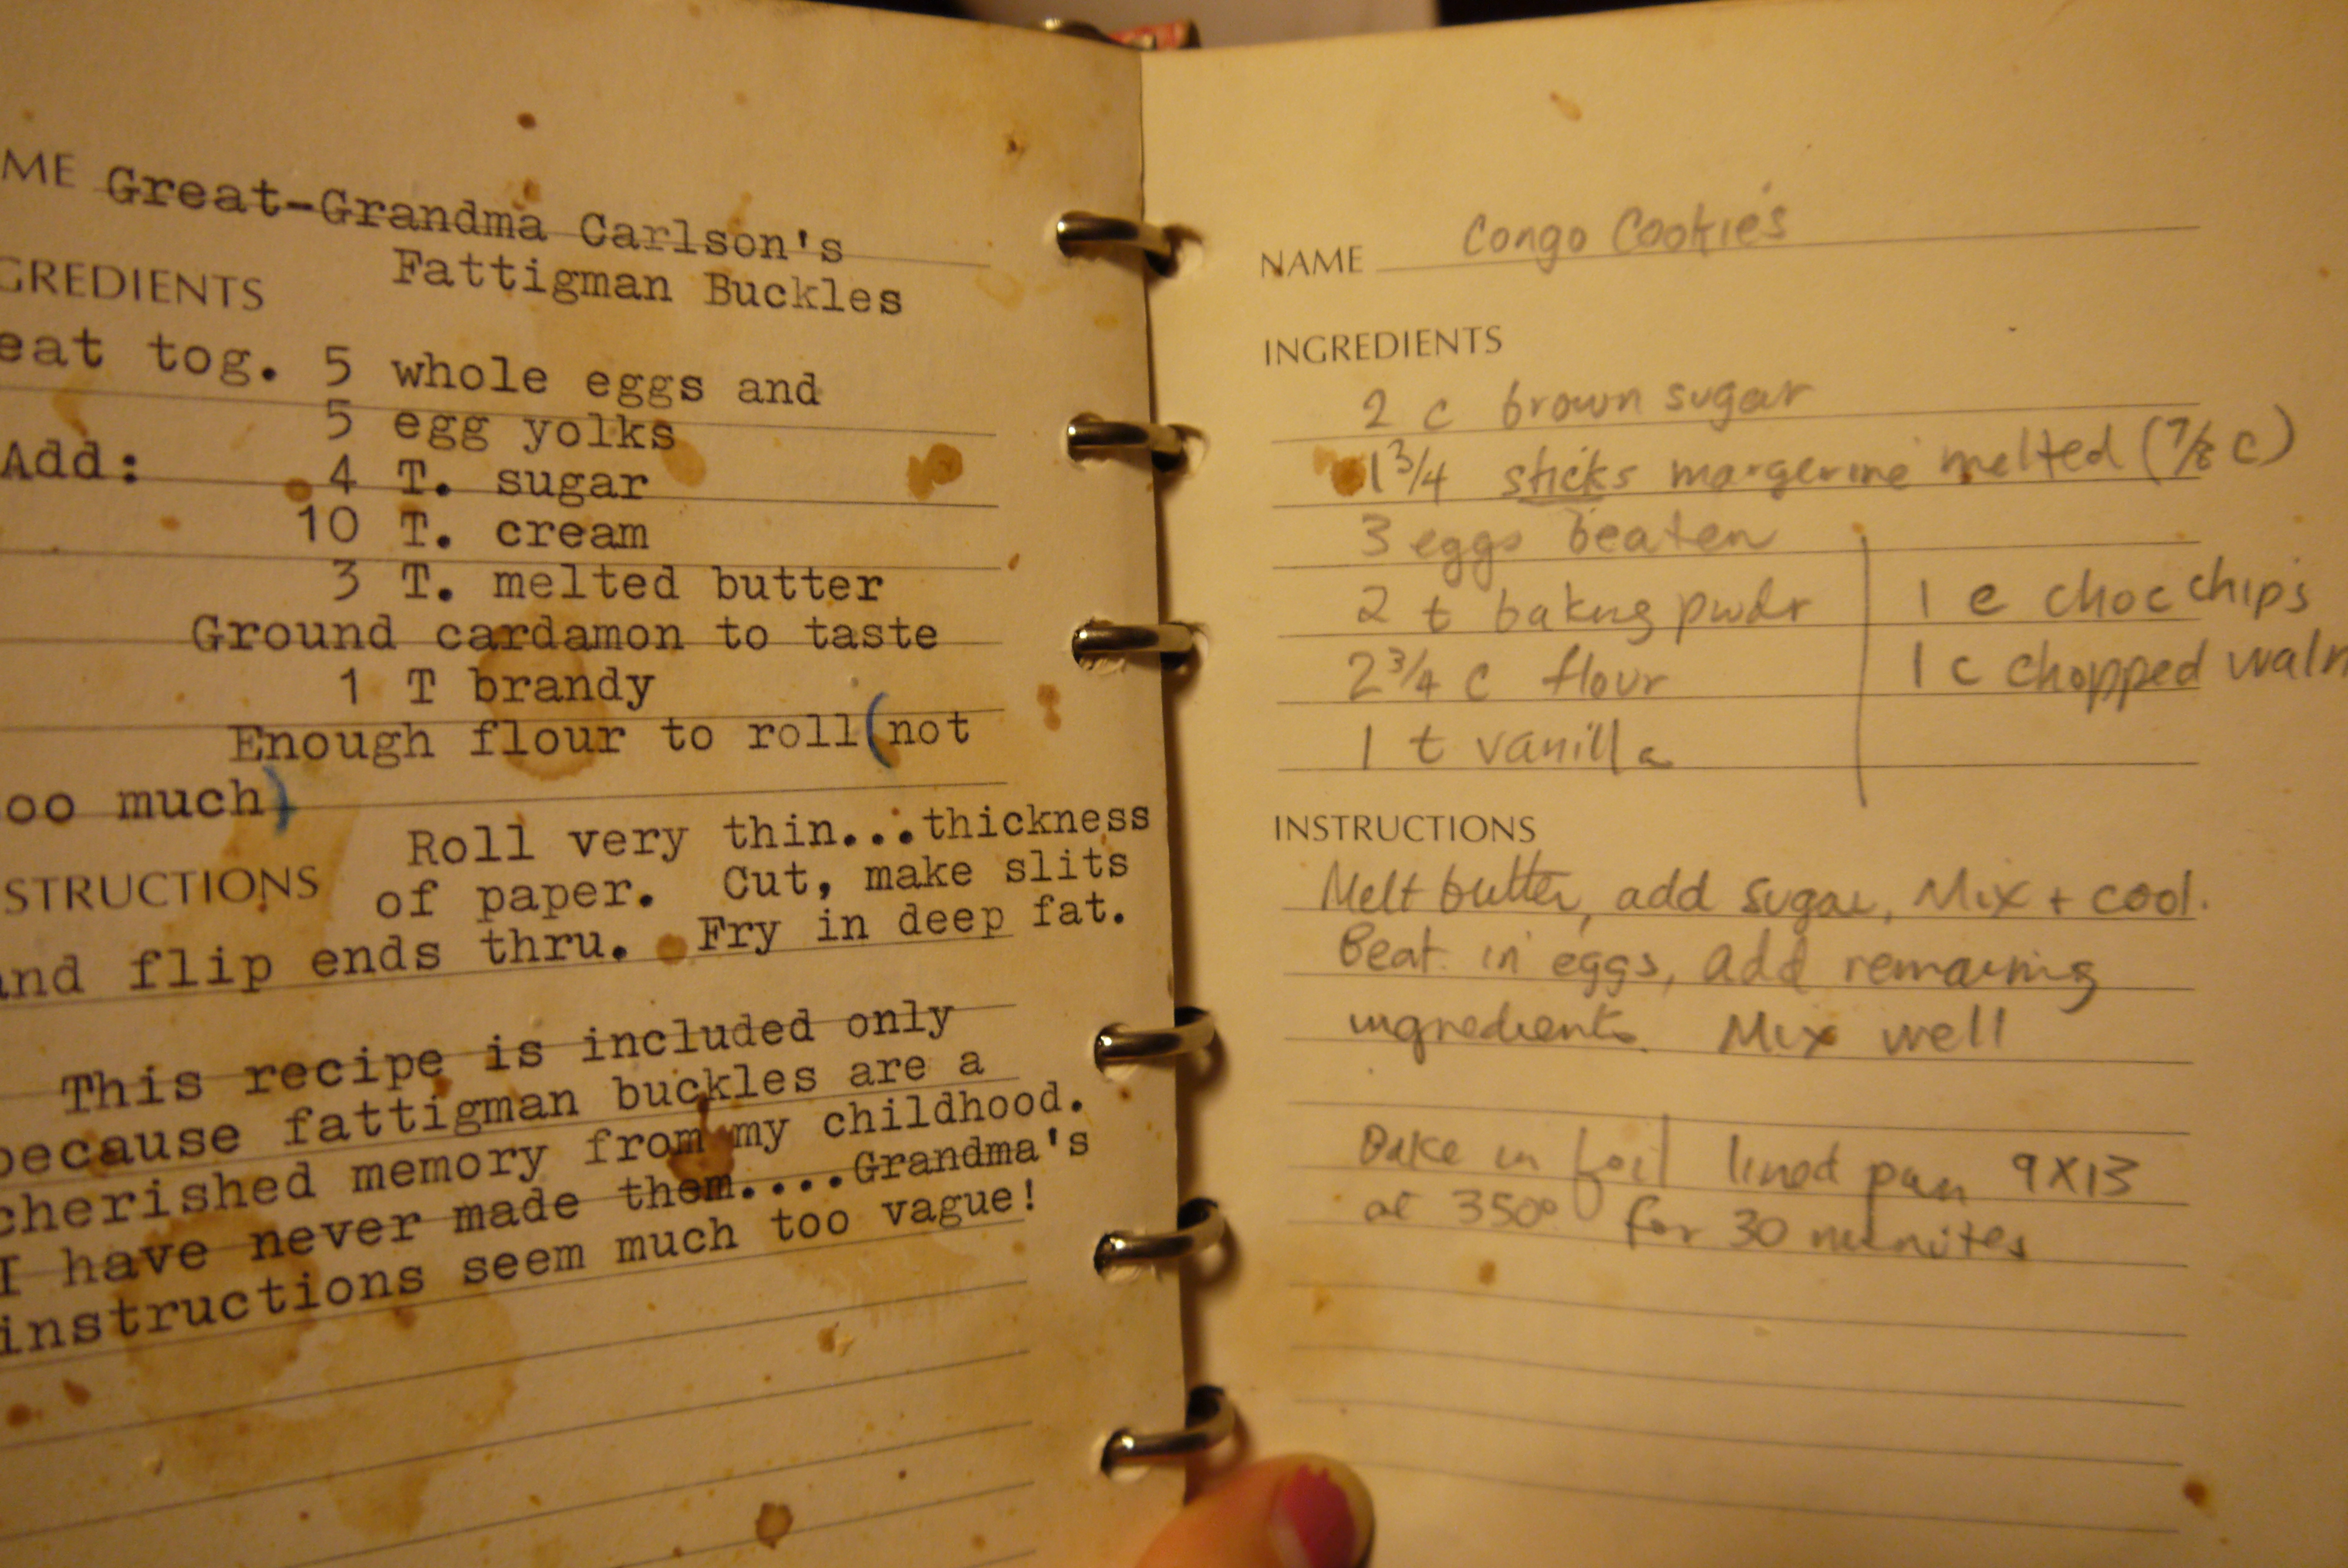 ME Great-Grandma Carlson's
Fattigman Buckles
GREDIENTS
eat tog. 5 whole eggs and
5 egg yolks
Add: 4 T. sugar
10 T. cream
3 T. melted butter
Ground cardamon to taste
1 T brandy
Enough flour to roll(not
oo much)
Roll very thin...thickness
STRUCTIONS of paper. Cut, make slits
and flip ends thru. Fry in deep fat.
This recipe is included only
because fattigman buckles are a
cherished memory from my childhood.
I have never made them....Grandma's
instructions seem much too vague!
NAME Congo Cookies
INGREDIENTS
2 c brown sugar
1 3/4 sticks margerine melted (7/8 c)
3 eggs beaten
2 t baking pwdr
2 3/4 c flour
1 t vanilla
1 c choc chips
1 c chopped waln
INSTRUCTIONS
Melt butter, add sugar, Mix + cool.
Beat in eggs, add remaining
ingredients. Mix well
Bake in foil lined pan 9X13
at 350° for 30 minutes